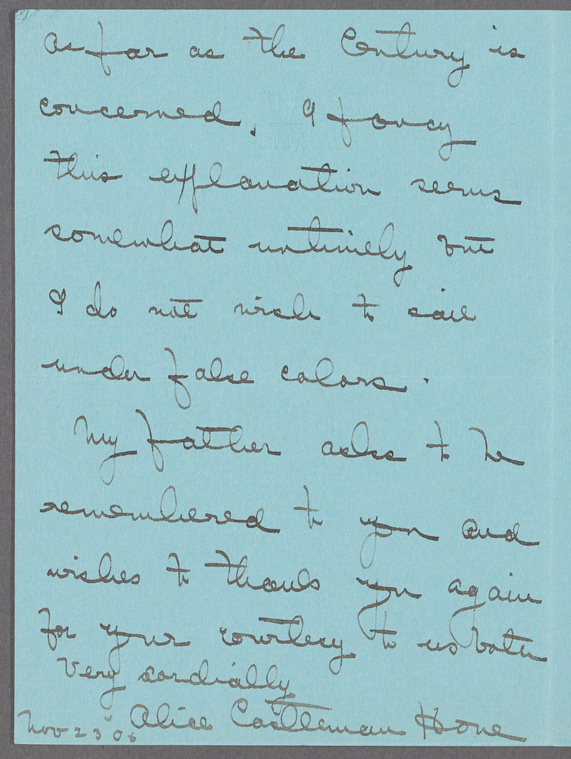 as far as the Century is
concerned. I fancy
this explanation seems
somewhat untimely but
I do not wish to sail
under false colors.
My father asks to be
remembered to you and
wishes to thank you again
for your courtesy to us both
Very cordially
Alice Castleman Hone
Nov 23rd 06